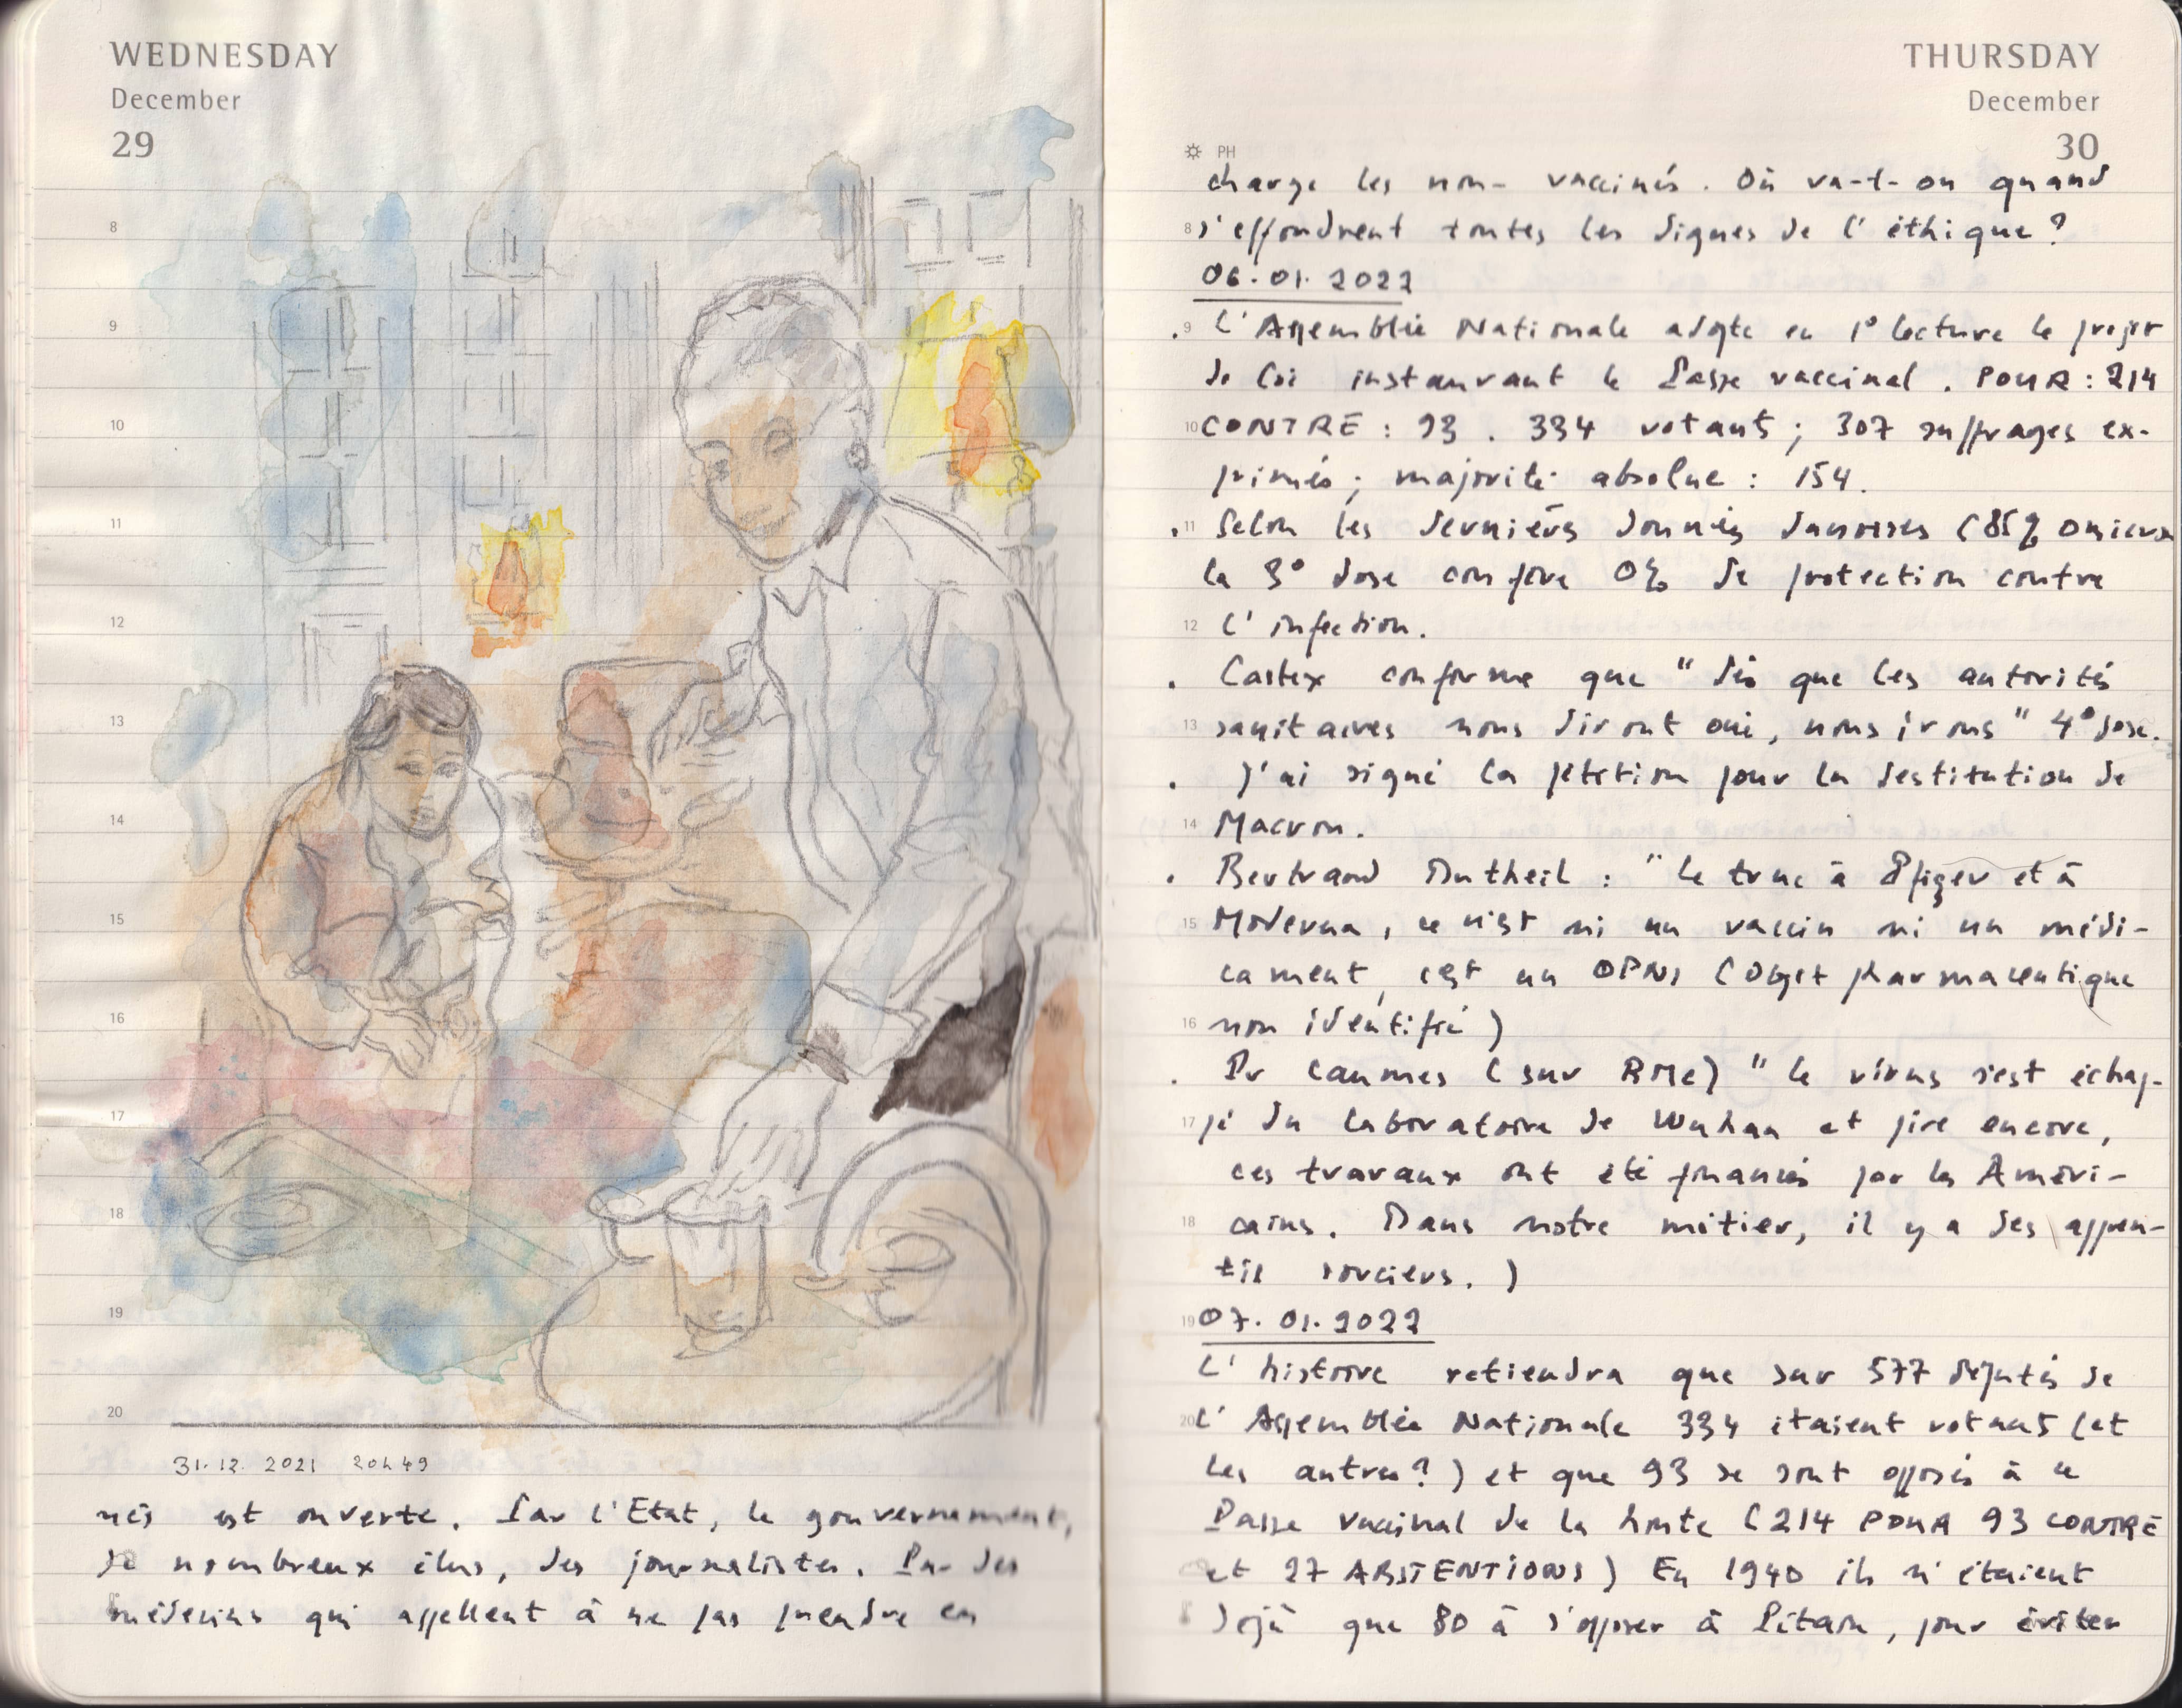 WEDNESDAY
December
29
8
9
10
11
12
13
14
15
16
17
18
19
20
31.12.2021 20h49
nés est ouverte. Par l'Etat, le gouvernement,
de nombreux élus, des journalistes. Par des
médecins qui appellent à ne pas prendre en
THURSDAY
December
30
PH
charge les non-vaccinés. Où va-t-on quand
8 s'effondrent toutes les digues de l'éthique?
06.01.2022
. 9 L'Assemblée Nationale adopte en 1° lecture le projet
de loi instaurant le Passe vaccinal. POUR : 214
10 CONTRE : 93. 334 votants ; 307 suffrages ex-
primés ; majorité absolue : 154.
. 11 Selon les dernières données danoises (85%
la 3° dose confère 0% de protection contre
12 l'infection.
. Castex confirme que "dès que les autorités
13 sanitaires nous diront oui, nous irons" 4° dose.
. J'ai signé la pétition pour la destitution de
14 Macron.
. Bertrand Dutheil : "le truc à Pfizer et à
15 Moderna, ce n'est ni un vaccin ni un médi-
cament, c'est un OPNI (Objet pharmaceutique
16 non identifié)
. Pr Caumes (sur RMC) "le virus s'est échap-
17 pé du laboratoire de Wuhan et pire encore,
ces travaux ont été financés par les Améri-
18 cains. Dans notre métier, il y a des appren-
tis sorciers. )
19 07.01.2022
L'histoire retiendra que sur 577 députés de
20 l'Assemblée Nationale 334 étaient votants (et
les autres?) et que 93 se sont opposés à ce
Passe vaccinal de la honte (214 POUR 93 CONTRE
et 27 ABSTENTIONS) En 1940 ils n'étaient
déjà que 80 à s'opposer à Pétain, pour éviter